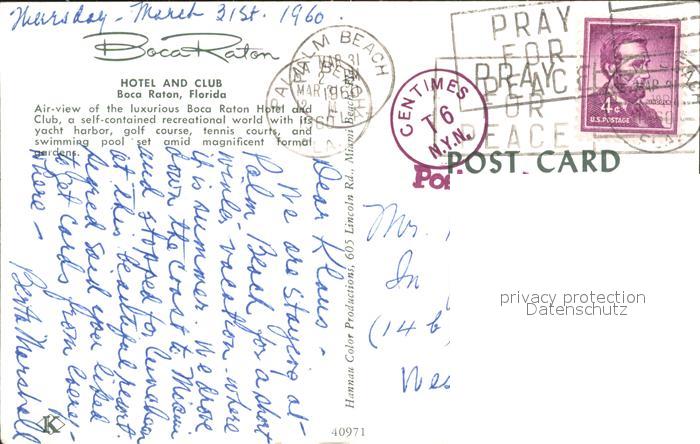 Thursday - March 31st. 1960.
Boca Raton
HOTEL AND CLUB
Boca Raton, Florida
Air-view of the luxurious Boca Raton Hotel and
Club, a self-contained recreational world with its
yacht harbor, golf course, tennis courts, and
swimming pool set amid magnificent formal
gardens.
Dear Klaus -
We are staying at
Palm Beach for a short
winter vacation - where
it is summer. We drove
down the coast to Miami
and stopped for luncheon
at this beautiful resort.
Sigred said you liked
to get cards from every-
where -
Berth Marshall
K
Hannau Color Productions, 605 Lincoln Rd., Miami Beach
40971
PALM BEACH
MAR 31
2 PM
1960
PALM BEACH
MAR 31
12 PM
1960
PRAY
FOR
PEACE
PRAY
FOR
PEACE
CENTIMES
T 6
N.Y.N.
4¢
U.S. POSTAGE
POST CARD
Po
Mr.
In
(14 b
Wes
privacy protection
Datenschutz